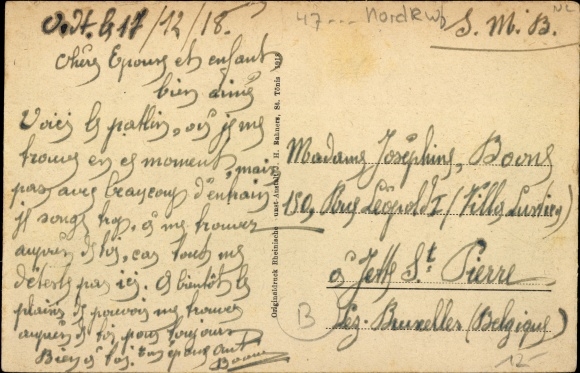 le 17/12/18.
Chère Epouse et enfant
bien aimé
Voici le patlin, où je me
trouve en ce moment, mais
pas avec beaucoup d'entrain
je songe trop, à me trouver
auprès de toi, car tout me
déteste pas ici. A bientôt le
plaisir de pouvoir me trouver
auprès de toi pour toujours
Bien à toi. ton époux
Boone
47 --- Nordrh
S. M. B.
Originaldruck Rheinische H. Rahners, St. Tönis 1918
Madame Joséphine, Boone
150, Rue Léopold I (Villa
à Jette St. Pierre
Lez-Bruxelles (Belgique)
B
12-